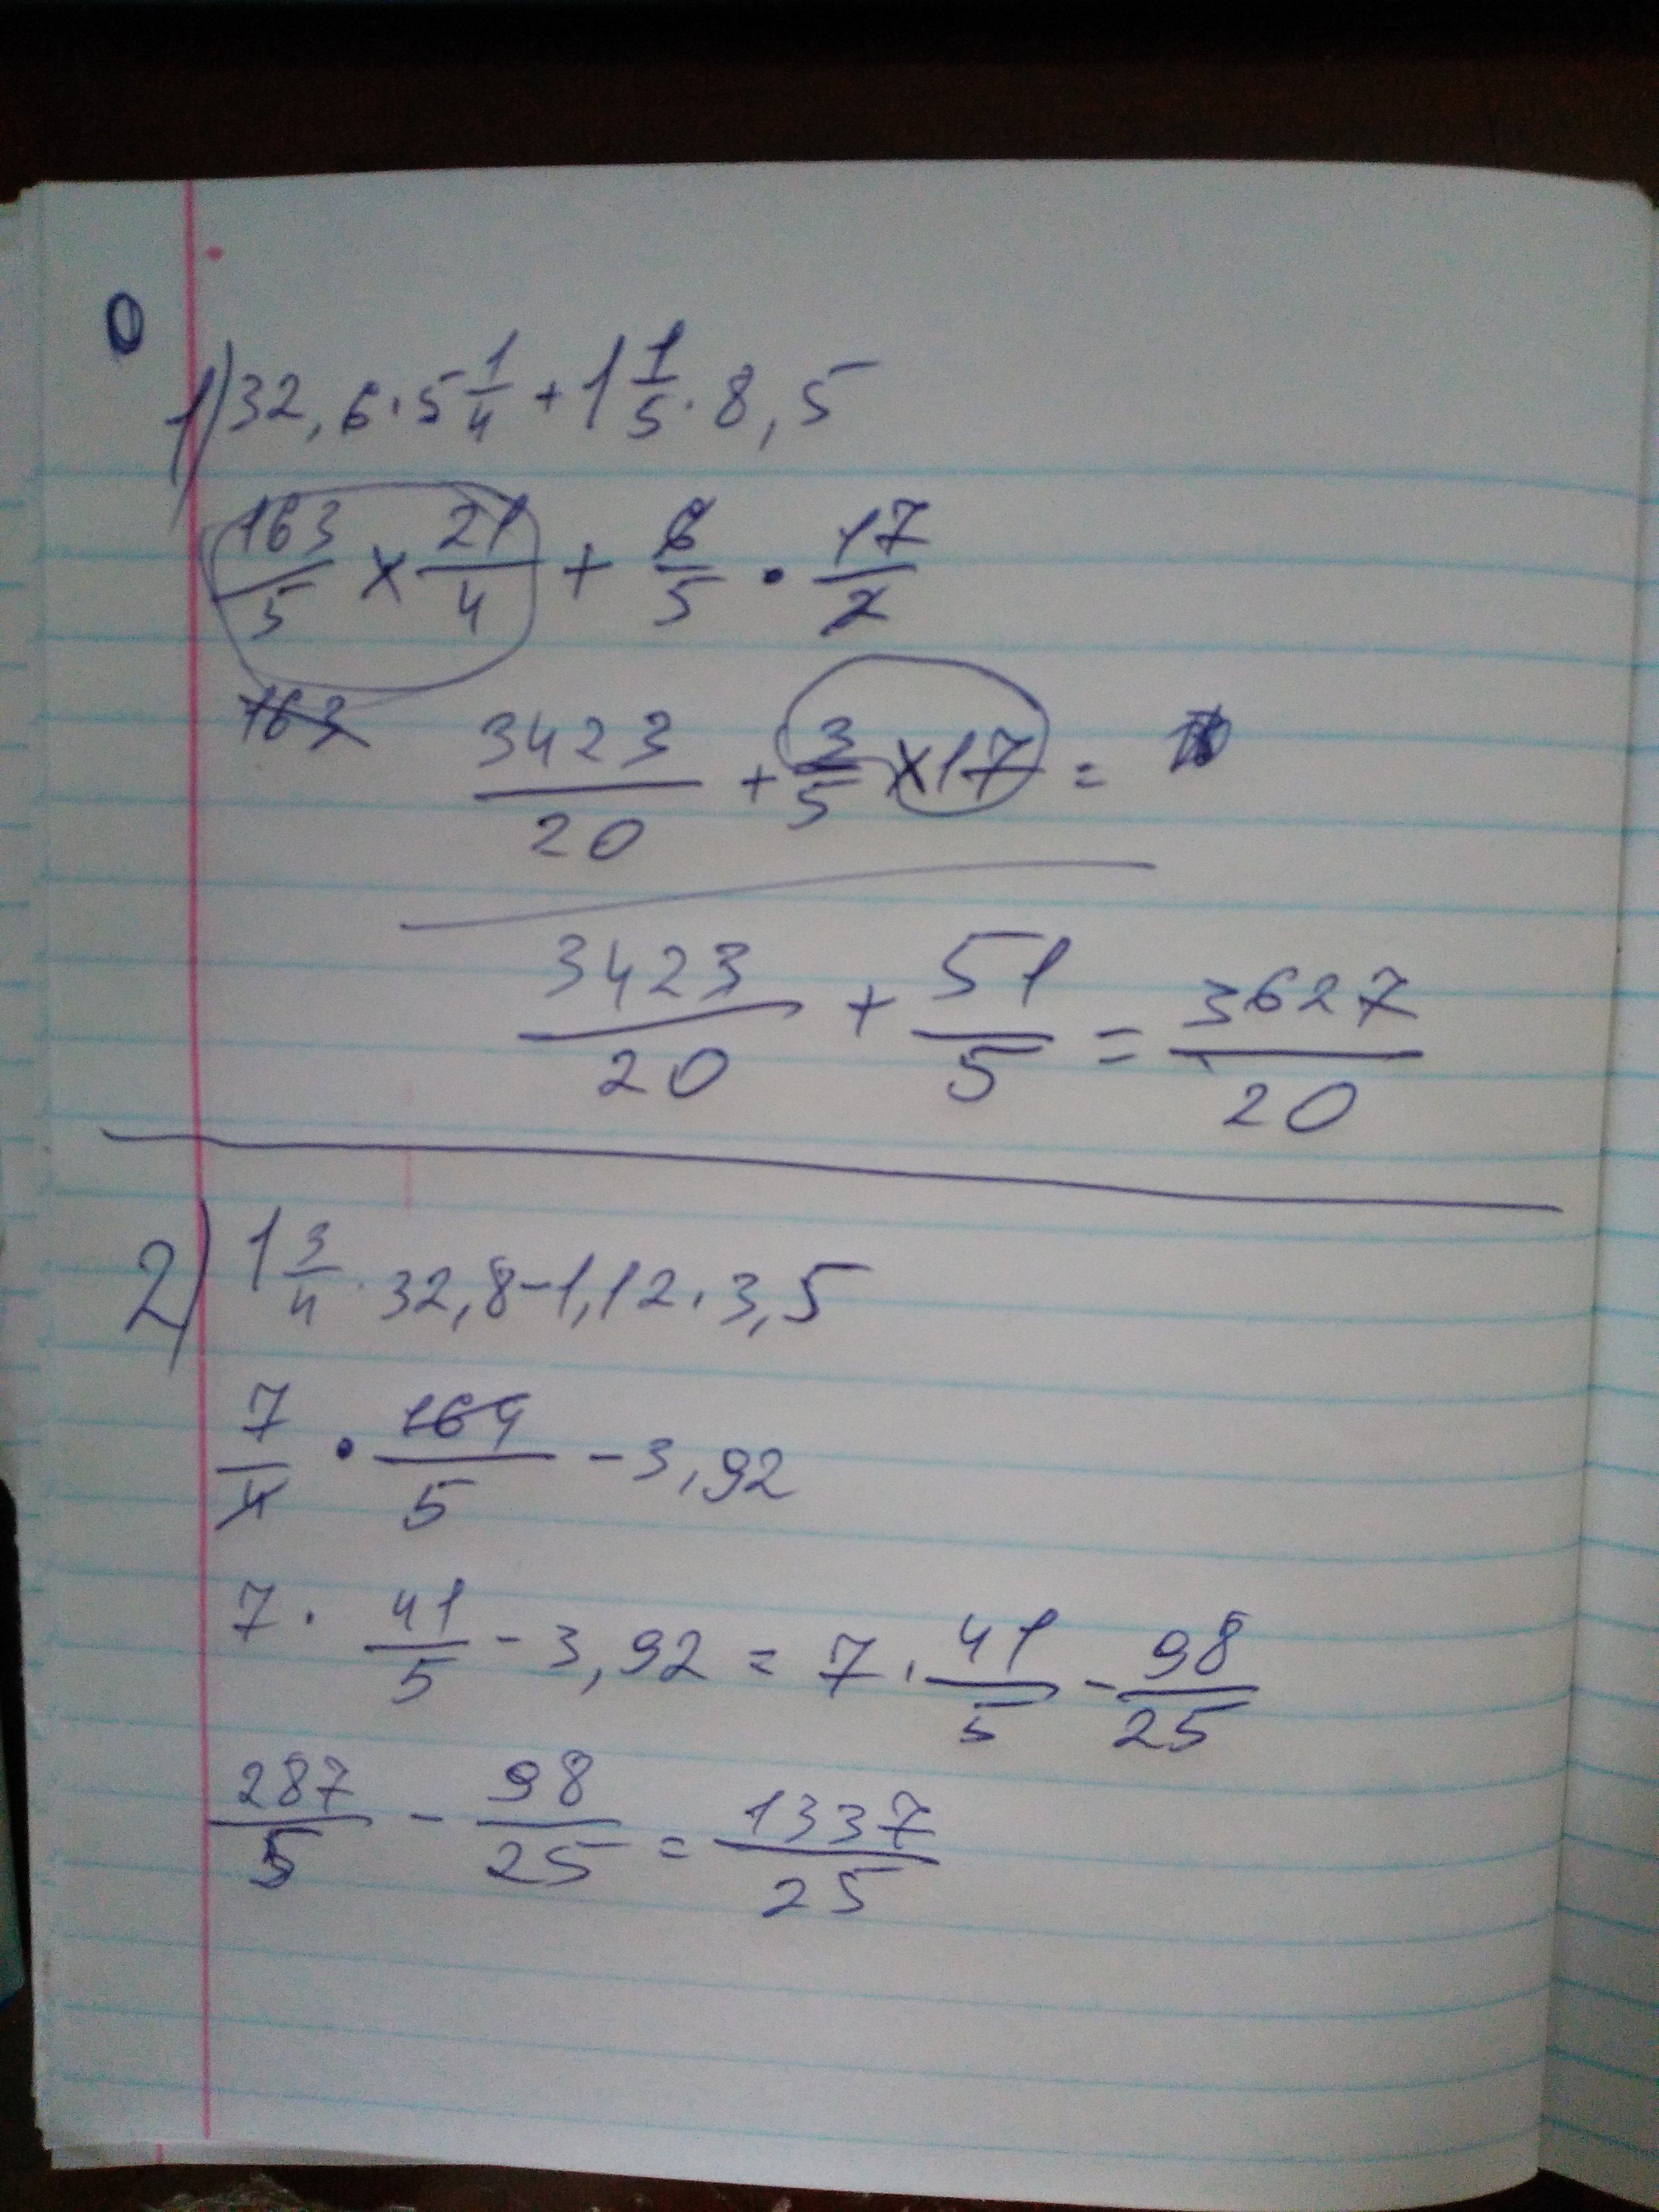 0
1) 32,6·5 1/4 + 1 1/5·8,5
163/5 × 21/4 + 6/5 · 17/2
163 3423/20 + 3/5 × 17 =
3423/20 + 51/5 = 3627/20
2) 1 3/4 · 32,8 - 1,12 · 3,5
7/4 · 164/5 - 3,92
7 · 41/5 - 3,92 = 7 · 41/5 - 98/25
287/5 - 98/25 = 1337/25